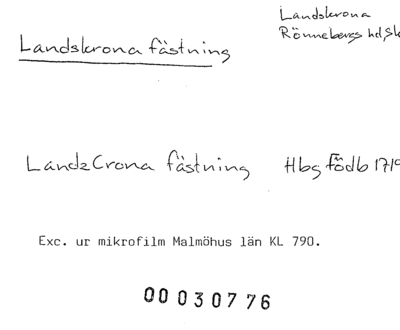 Landskrona
Landskrona fästning
Rönnebergs hd, Sk
LandzCrona fästning Hbg födb 1719
Exc. ur mikrofilm Malmöhus län KL 790.
00 030776